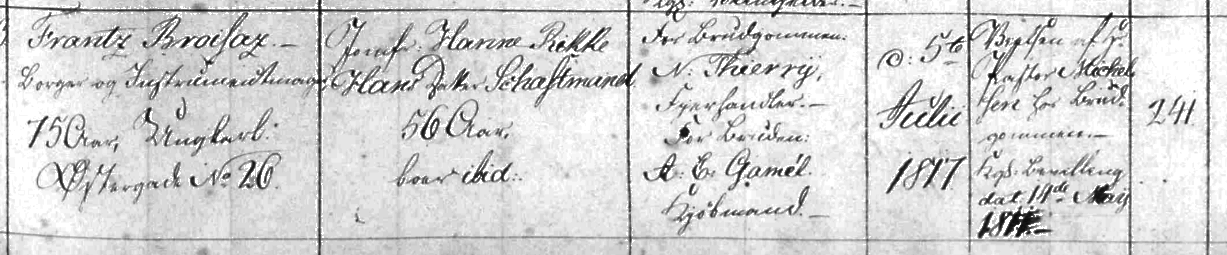 Frantz Broisaz.-
Borger og Instrumentmager
75 Aar, Ungkarl:
Østergade No 26.
Jomfr: Hanne Rikke
Hans Datter Schaftmand
56 Aar,
boer ibid:.
For Brudgommen:
N: Thierry,
Handler.-
For Bruden:
A: E: Gamél
Kjöbmand.-
d: 5te
Julii
1817
Vielsen af Hr.
Pastor Michel
sen hos Brud-
gommen.-
Kgl: Bevilling
dat 14de May
1817.-
241